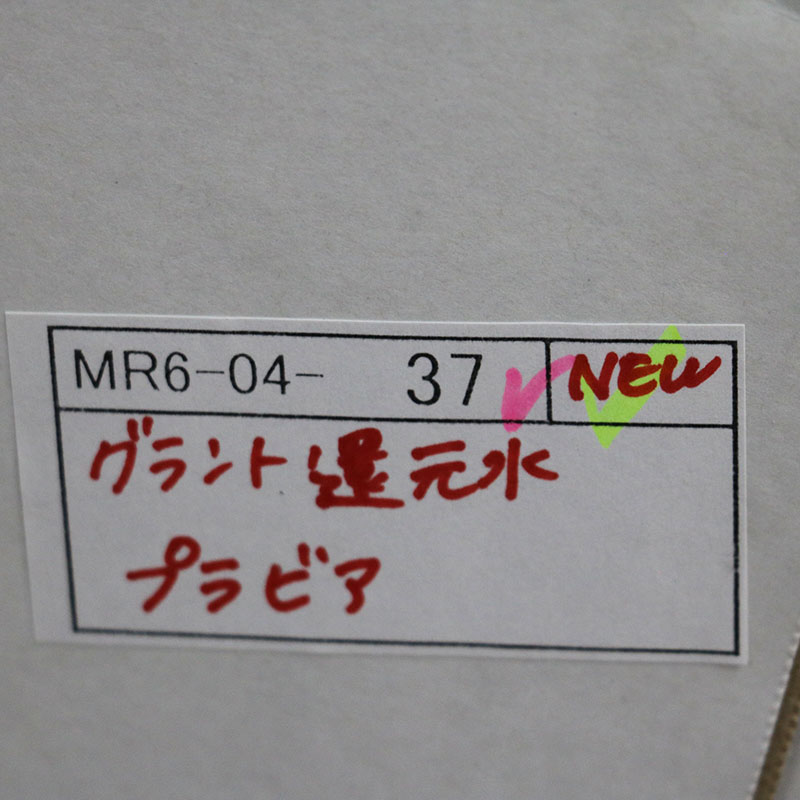 MR6-04- 37 NEW
グラント還元水
プラビア